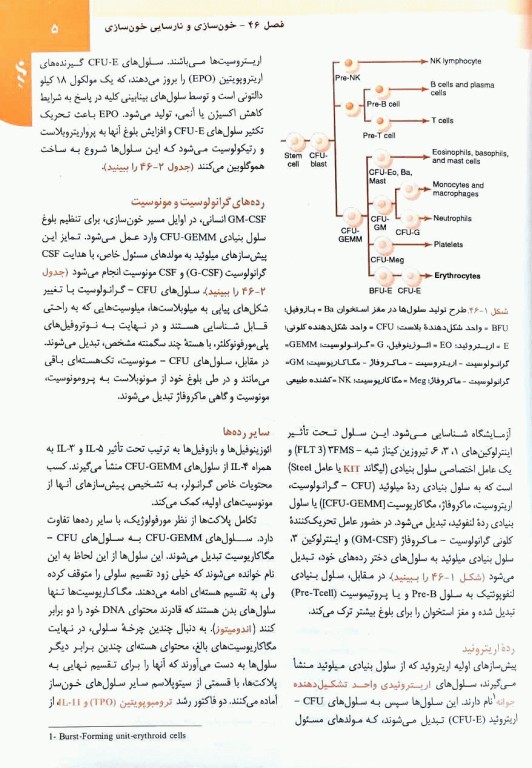 فصل ۴۶ - خون‌سازی و نارسایی خون‌سازی
۵
NK lymphocyte
Pre-NK
B cells and plasma
cells
Pre-B cell
T cells
Pre-T cell
Stem
cell
CFU-
blast
Eosinophils, basophils,
and mast cells
CFU-Eo, Ba,
Mast
Monocytes and
macrophages
CFU-
GM
CFU-G
Neutrophils
CFU-
GEMM
Platelets
CFU-Meg
Erythrocytes
BFU-E CFU-E
شکل ۱-۴۶. طرح تولید سلول‌ها در مغز استخوان Ba = بازوفیل؛
BFU = واحد شکل‌دهندهٔ بلاست؛ CFU = واحد شکل‌دهنده کلونی؛
E = اریتروئید؛ EO = ائوزینوفیل، G = گرانولوسیت؛ GEMM=
گرانولوسیت - اریتروسیت - ماکروفاژ - مگاکاریوسیت؛ GM=
گرانولوسیت - ماکروفاژ؛ Meg = مگاکاریوسیت؛ NK =کشنده طبیعی
آزمایشگاه شناسایی می‌شود. این سلول تحت تأثیر
اینترلوکین‌های ۱، ۳، ۶، تیروزین کیناز شبه - ۳FMS (FLT 3) و
یک عامل اختصاصی سلول بنیادی (لیگاند KIT یا عامل Steel)
است که به سلول بنیادی ردهٔ میلوئید (CFU - گرانولوسیت،
اریتروسیت، ماکروفاژ، مگاکاریوسیت [CFU-GEMM]) یا سلول
بنیادی ردهٔ لنفوئید، تبدیل می‌شود. در حضور عامل تحریک‌کنندهٔ
کلونی گرانولوسیت - ماکروفاژ (GM-CSF) و اینترلوکین ۳،
سلول بنیادی میلوئید به سلول‌های دختر رده‌های خود، تبدیل
می‌شود (شکل ۱-۴۶ را ببینید). در مقابل، سلول بنیادی
لنفوپوئتیک به سلول Pre-B و یا پروتیموسیت (Pre-Tcell)
تبدیل شده و مغز استخوان را برای بلوغ بیشتر ترک می‌کند.
ردهٔ اریتروئید
پیش‌سازهای اولیه اریتروئید که از سلول بنیادی میلوئید منشأ
می‌گیرند، سلول‌های اریتروئیدی واحد تشکیل‌دهنده
جوانه¹ نام دارند. این سلول‌ها سپس به سلول‌های CFU -
اریتروئید (CFU-E) تبدیل می‌شوند، که مولدهای مسئول
اریتروسیت‌ها می‌باشند. سلول‌های CFU-E گیرنده‌های
اریتروپویتین (EPO) را بروز می‌دهند، که یک مولکول ۱۸ کیلو
دالتونی است و توسط سلول‌های بینابینی کلیه در پاسخ به شرایط
کاهش اکسیژن یا آنمی، تولید می‌شود. EPO باعث تحریک
تکثیر سلول‌های CFU-E و افزایش بلوغ آنها به پرواریتروبلاست
و رتیکولوسیت می‌شود که این سلول‌ها شروع به ساخت
هموگلوبین می‌کنند (جدول ۲-۴۶ را ببینید).
رده‌های گرانولوسیت و مونوسیت
GM-CSF انسانی، در اوایل مسیر خون‌سازی، برای تنظیم بلوغ
سلول بنیادی CFU-GEMM وارد عمل می‌شود. تمایز این
پیش‌سازهای میلوئید به مولدهای مسئول خاص، با هدایت CSF
گرانولوسیت (G-CSF) و CSF مونوسیت انجام می‌شود (جدول
۲-۴۶ را ببینید). سلول‌های CFU - گرانولوسیت با تغییر
شکل‌های پیاپی به میلوبلاست‌ها، میلوسیت‌هایی که به راحتی
قابل شناسایی هستند و در نهایت به نوتروفیل‌های
پلی‌مورفونوکلئر، با هستهٔ چند سگمنته مشخص، تبدیل می‌شوند.
در مقابل، سلول‌های CFU - مونوسیت، تک‌هسته‌ای باقی
می‌مانند و در طی بلوغ خود از مونوبلاست به پرومونوسیت،
مونوسیت و گاهی ماکروفاژ تبدیل می‌شوند.
سایر رده‌ها
ائوزینوفیل‌ها و بازوفیل‌ها به ترتیب تحت تأثیر IL-۵ و IL-۳ به
همراه IL-۴ از سلول‌های CFU-GEMM منشأ می‌گیرند. کسب
محتویات خاص گرانولر، به تشخیص پیش‌سازهای آنها از
مونوسیت‌های اولیه، کمک می‌کند.
تکامل پلاکت‌ها از نظر مورفولوژیک، با سایر رده‌ها تفاوت
دارد. سلول‌های CFU-GEMM به سلول‌های CFU -
مگاکاریوسیت تبدیل می‌شوند. این سلول‌ها از این لحاظ به این
نام خوانده می‌شوند که خیلی زود تقسیم سلولی را متوقف کرده
ولی به تقسیم هسته‌ای ادامه می‌دهند. مگاکاریوسیت‌ها تنها
سلول‌های بدن هستند که قادرند محتوای DNA خود را دو برابر
کنند (اندومیتوز). به دنبال چندین چرخهٔ سلولی، در نهایت
مگاکاریوسیت‌های بالغ، محتوای هسته‌ای چندین برابر دیگر
سلول‌ها به دست می‌آورند که آنها را برای تقسیم نهایی به
پلاکت‌ها، با قسمتی از سیتوپلاسم سایر سلول‌های خون‌ساز
آماده می‌کنند. دو فاکتور رشد ترومبوپویتین (TPO) و IL-11، از
1- Burst-Forming unit-erythroid cells